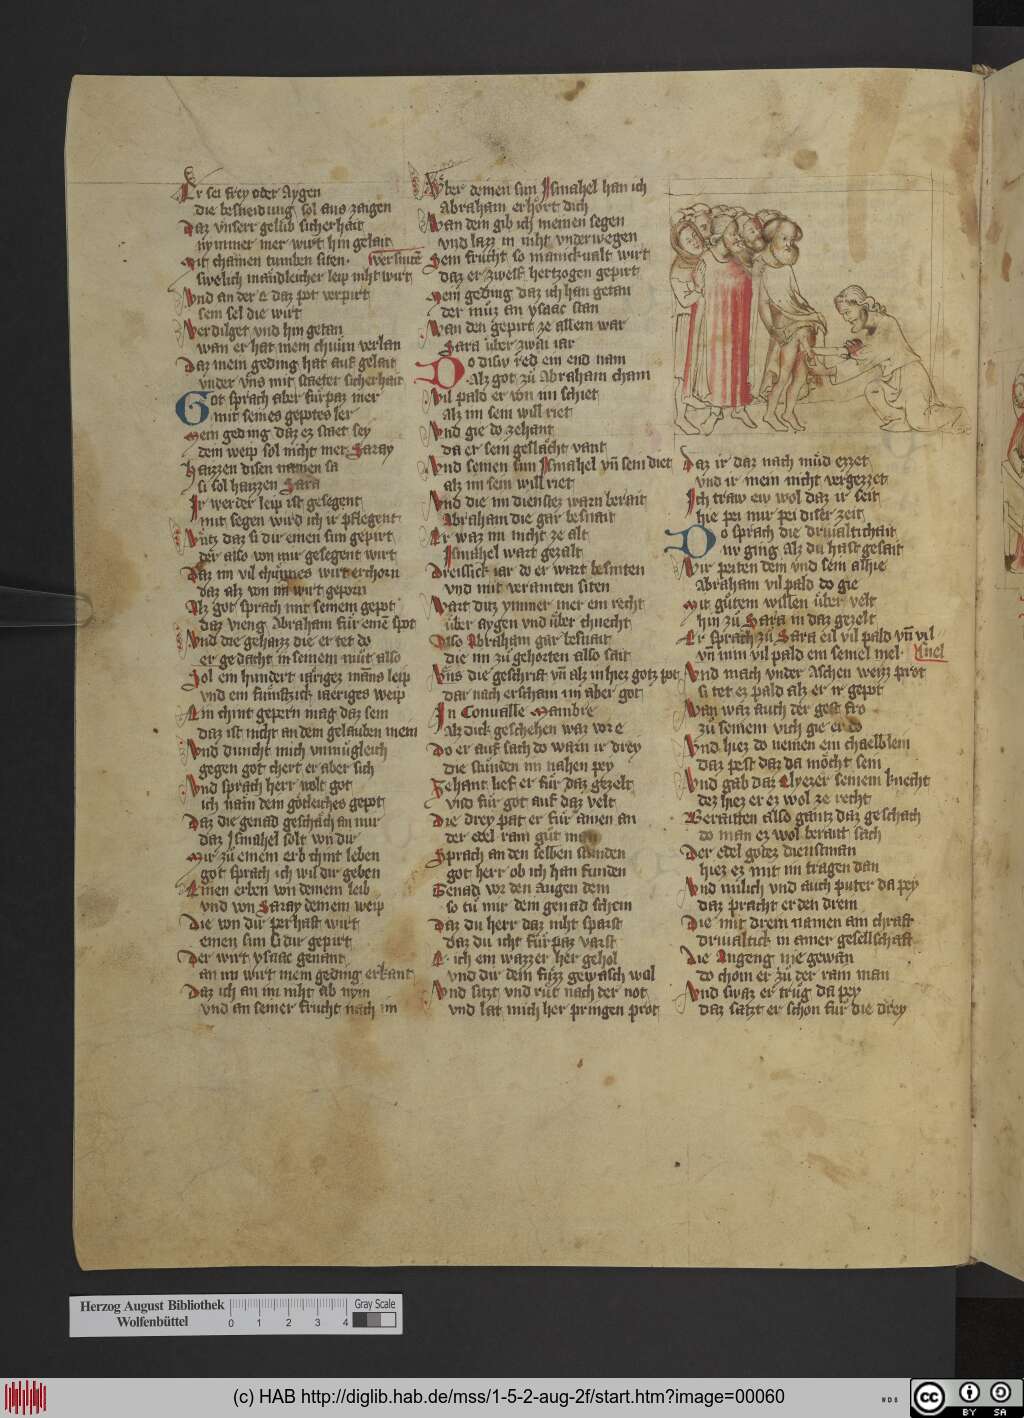 Er sei frey oder Aygen
die besneidung sol aus zaigen
Daz vnserr gelub sicherhait
nymmer mer wirt hin gelait
Mit chainen tumben siten
swelich mändleicher leip niht wirt
versniten
Vnd an der e daz pot verpirt
sein sel die wirt
Verdilget vnd hin getan
wan er hat mein chunn verlan
Daz mein geding hat auf gelait
vnder vns mit staeter sicherhait
Got sprach aber fürpaz mer
mit seines gepotes ler
Mein geding daz ez staet sey
dem weip sol nicht mer Saray
Haizzen disen namen sa
si sol haizzen Sara
Ir werder leip ist gesegent
mit segen wird ich ir pflegent
Vntz daz si dir einen sun gepirt
der also von mir gesegent wirt
Daz im vil chünnes wirt erchorn
daz alz von im wirt geporn
Alz got sprach mit seinem gepot
daz vieng Abraham für eine spot
Vnd doe gehazz die er tet do
er gedacht in seinem müt also
Sol ein hundert iarigez mans leip
vnd ein fumftzick iaeriges weip
Ein chint gepern mag daz sein
daz ist nicht an dem gelauben mein
Vnd duncht mich vnmügleich
gegen got chert er aber sich
Vnd sprach herr wolt got
ich nain dem götleiches gepot
Daz die genad geschäch an mir
daz Ismahel solt von dir
Mir zü einem erb chint leben
got sprach ich wil dir geben
Einen erben von deinem leib
vnd von Saray deinem weip
Die von dir perhaft wirt
einen sun si dir gepirt
Der wirt ysaac genant
an im wirt mein geding erkant
Daz ich an im niht ab nym
vnd an seiner frucht nach im
Vber deinen sun Ismahel han ich
Abraham erhört dich
Wan dem gib ich meinen segen
vnd lazz in niht vnderwegen
Sein frücht so manickualt wirt
daz er zwelf hertzogen gepirt
Mein geding daz ich han getan
der müz an ysaac stan
Wan den gepirt ze allem war
Sara über zwai iar
Do disiv red ein end nam
Alz got zü Abraham cham
Vil pald er von im schiet
alz im sein will riet
Vnd gie do zehant
da er sein geslächt vant
Vnd seinen sun Ismahel vnd sein diet
alz im sein will riet
Vnd die im dienstez warn berait
Abraham die gar besnait
Er waz im nicht ze alt
Ismahel wart gezalt
Dreissick iar do er wart besniten
vnd mit veranten siten
Wart ditz ymmer mer ein recht
über aygen vnd über chnecht
Also Abraham gar besnait
die im zü gehorten also sait
Vns die geschrift vnd alz in hiez gotz pot
dar nach erschain im aber got
In Conualle Mambre
Alz dick geschehen waz vor e
Do er auf sach do warn ir drey
die stunden im nahen pey
Zehant lief er für daz gezelt
vnd für got auf daz velt
Die drey pat er für ainen an
der edel rain güt man
Sprach an den selben stunden
got herr ob ich han funden
Genad vor den augen dein
so tü mir dein genad schein
Daz du herr daz niht sparst
daz du icht fürpaz varst
E ich ein wazzer her gehol
vnd dir dein füzz gewasch wol
Vnd sitzt vnd rüt nach der not
vnd lat mich her pringen prot
Daz ir dar nach müd ezzet
vnd ir mein nicht vergezzet
Ich traw ew wol daz ir seit
hie pei mir pei diser zeit
Do sprach die driualtichait
nv ging alz du hast gesait
Wir peiten dein vnd sein alhie
Abraham vil pald do gie
Mit gütem willen über velt
hin zü Sara in daz gezelt
Er sprach zü Sara eil vil pald vnd vil
vnd nim vil pald ein semel mel
snel
Vnd mach vnder Aschen weizz prot
si tet ez pald alz er ir gepot
Wan waz auch der gest fro
zü seinem vich gie er do
Vnd hiez do nemen ein chaelblein
daz pest daz da möcht sein
Vnd gab daz Elyezer seinem knecht
dez hiez er ez wol ze recht
Beraitten also gantz daz geschach
do man ez wol berait sach
Der edel gotez dienstman
hiez ez mit im tragen dan
Vnd milich vnd auch puter da pey
daz pracht er den drein
Die mit drein namen ain chraft
driualtick in ainer gesellschaft
Die Angeng nie gewan
do chom er zü der rain man
Vnd swaz er trüg da pey
daz satzt er schon für die drey
Herzog August Bibliothek
Wolfenbüttel
0 1 2 3 4
Gray Scale
(c) HAB http://diglib.hab.de/mss/1-5-2-aug-2f/start.htm?image=00060
cc BY SA